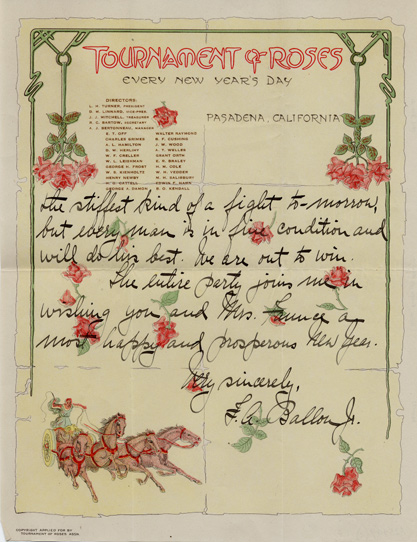 TOURNAMENT OF ROSES
EVERY NEW YEAR'S DAY
PASADENA, CALIFORNIA
DIRECTORS:
L. H. TURNER, PRESIDENT
D. M. LINNARD, VICE-PRES.
J. J. MITCHELL, TREASURER
R. C. BARTOW, SECRETARY
A. J. BERTONNEAU, MANAGER
E. T. OFF
CHARLES GRIMES
A. L. HAMILTON
E. W. KNIGHT
W. F. CRELLER
W. L. LEISHMAN
GEORGE H. FROST
W. S. KIENHOLTZ
HENRY NEWBY
M. S. CATTELL
GEORGE A. DAMON
WALTER RAYMOND
B. F. CUSHING
J. W. WOOD
A. T. WELLES
GRANT ORTH
S. S. BRALEY
H. M. COLE
W. H. VEDDER
W. N. SALISBURY
EDWIN C. HAHN
D. G. KENDALL
the stiffest kind of a fight to-morrow,
but every man is in fine condition and
will do his best. We are out to win.
The entire party joins me in
wishing you and Mrs. Faunce a
most happy and prosperous New Year.
Very sincerely,
F. A. Ballou Jr.
COPYRIGHT APPLIED FOR BY
TOURNAMENT OF ROSES ASSN.